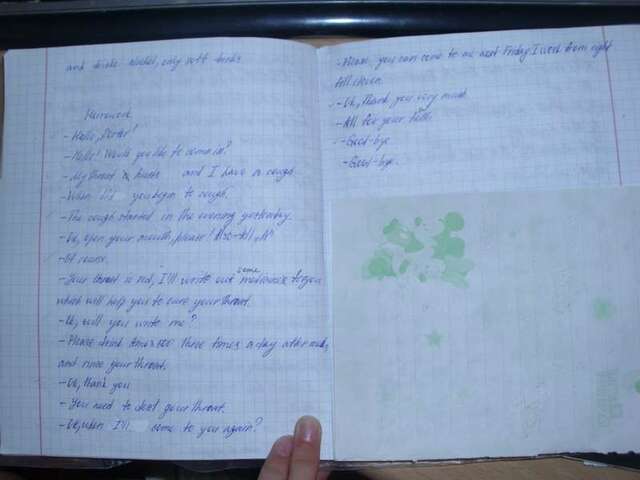 and drinks alcohol, only soft drinks
Homework
- Hello, Doctor!
- Hello! Would you like to come in?
- My throat is hurts and I have a cough
- When did you begin to cough.
- The cough started in the evening yesterday.
- Ok, open your mouth, please!
- Of course.
- Your throat is red, I'll write out some medicines to you
which will help you to cure your throat.
- Ok, will you write me?
- Please drink three times a day after meals,
and rinse your throat.
- Ok, thank you
- You need to your throat.
- Ok, when I'll come to you again?
- you can come to me next Friday. I work from eight
till eleven.
- Oh, Thank you very much.
- All for your
- Good-bye
- Good-bye.